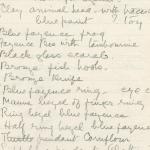 Clay animal head. with traces
blue paint ? Toy
Blue fayence frog
Fayence Bes with tambourine
Black glass scarab
Bronze fish hook.
Bronze Knife
Blue fayence ring. eye
Mauve bezel of finger ring
Ring bezel blue fayence
Half ring bezel blue fayence
Thirty pendant Cornflower